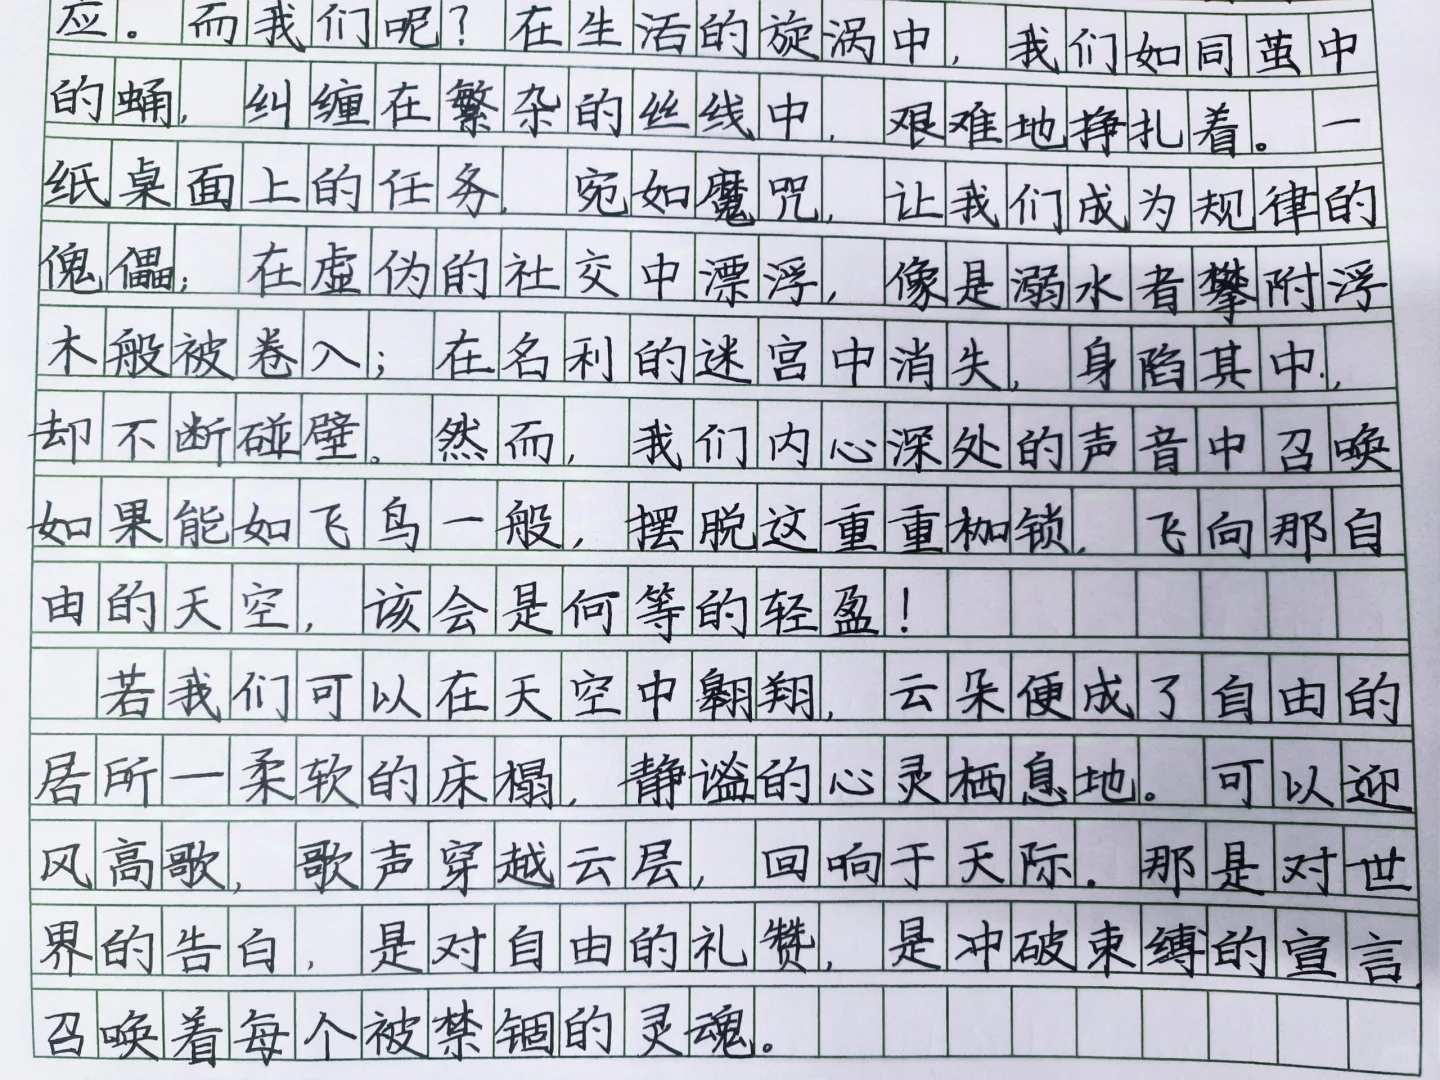 应。而我们呢？在生活的旋涡中，我们如同茧中
的蛹，纠缠在繁杂的丝线中，艰难地挣扎着。一
纸桌面上的任务，宛如魔咒，让我们成为规律的
傀儡；在虚伪的社交中漂浮，像是溺水者攀附浮
木般被卷入；在名利的迷宫中消失，身陷其中，
却不断碰壁。然而，我们内心深处的声音中召唤
如果能如飞鸟一般，摆脱这重重枷锁，飞向那自
由的天空，该会是何等的轻盈！
若我们可以在天空中翱翔，云朵便成了自由的
居所一柔软的床榻，静谧的心灵栖息地。可以迎
风高歌，歌声穿越云层，回响于天际.那是对世
界的告白，是对自由的礼赞，是冲破束缚的宣言
召唤着每个被禁锢的灵魂。